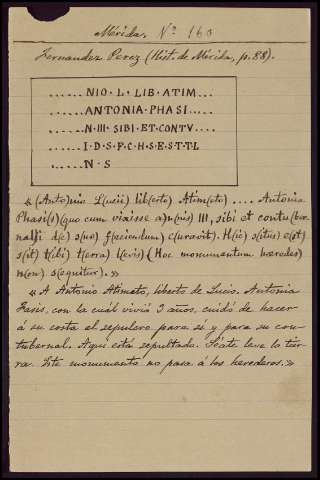 Mérida. Nº 160
Fernandez Perez (Hist. de Mérida, p. 88).
......NIO · L · LIB · ATIM....
......ANTONIA · PHASI....
......N · III · SIBI · ET · CONTV....
......I · D · S · F · C · H · S · E · S · T · T · L
......N · S
« (Anto)nio L(ucii) lib(erto) Atim(eto) .... Antonia
Phasi(s) (quo cum vixisse a)n(nis) III, sibi et contu(ber
nal)i d(e) s(uo) f(aciendum) c(uravit). H(ic) s(itus) e(st)
s(it) t(ibi) t(erra) l(evis) (Hoc monumentum heredes)
n(on) s(equitur). »
« A Antonio Atimeto, liberto de Lucio. Antonia
Fasis, con la cuál vivió 3 años, cuidó de hacer
á su costa el sepulcro para sí y para su con-
tubernal. Aquí está sepultado. Séate leve la tier-
ra. Este monumento no pasa á los herederos. »